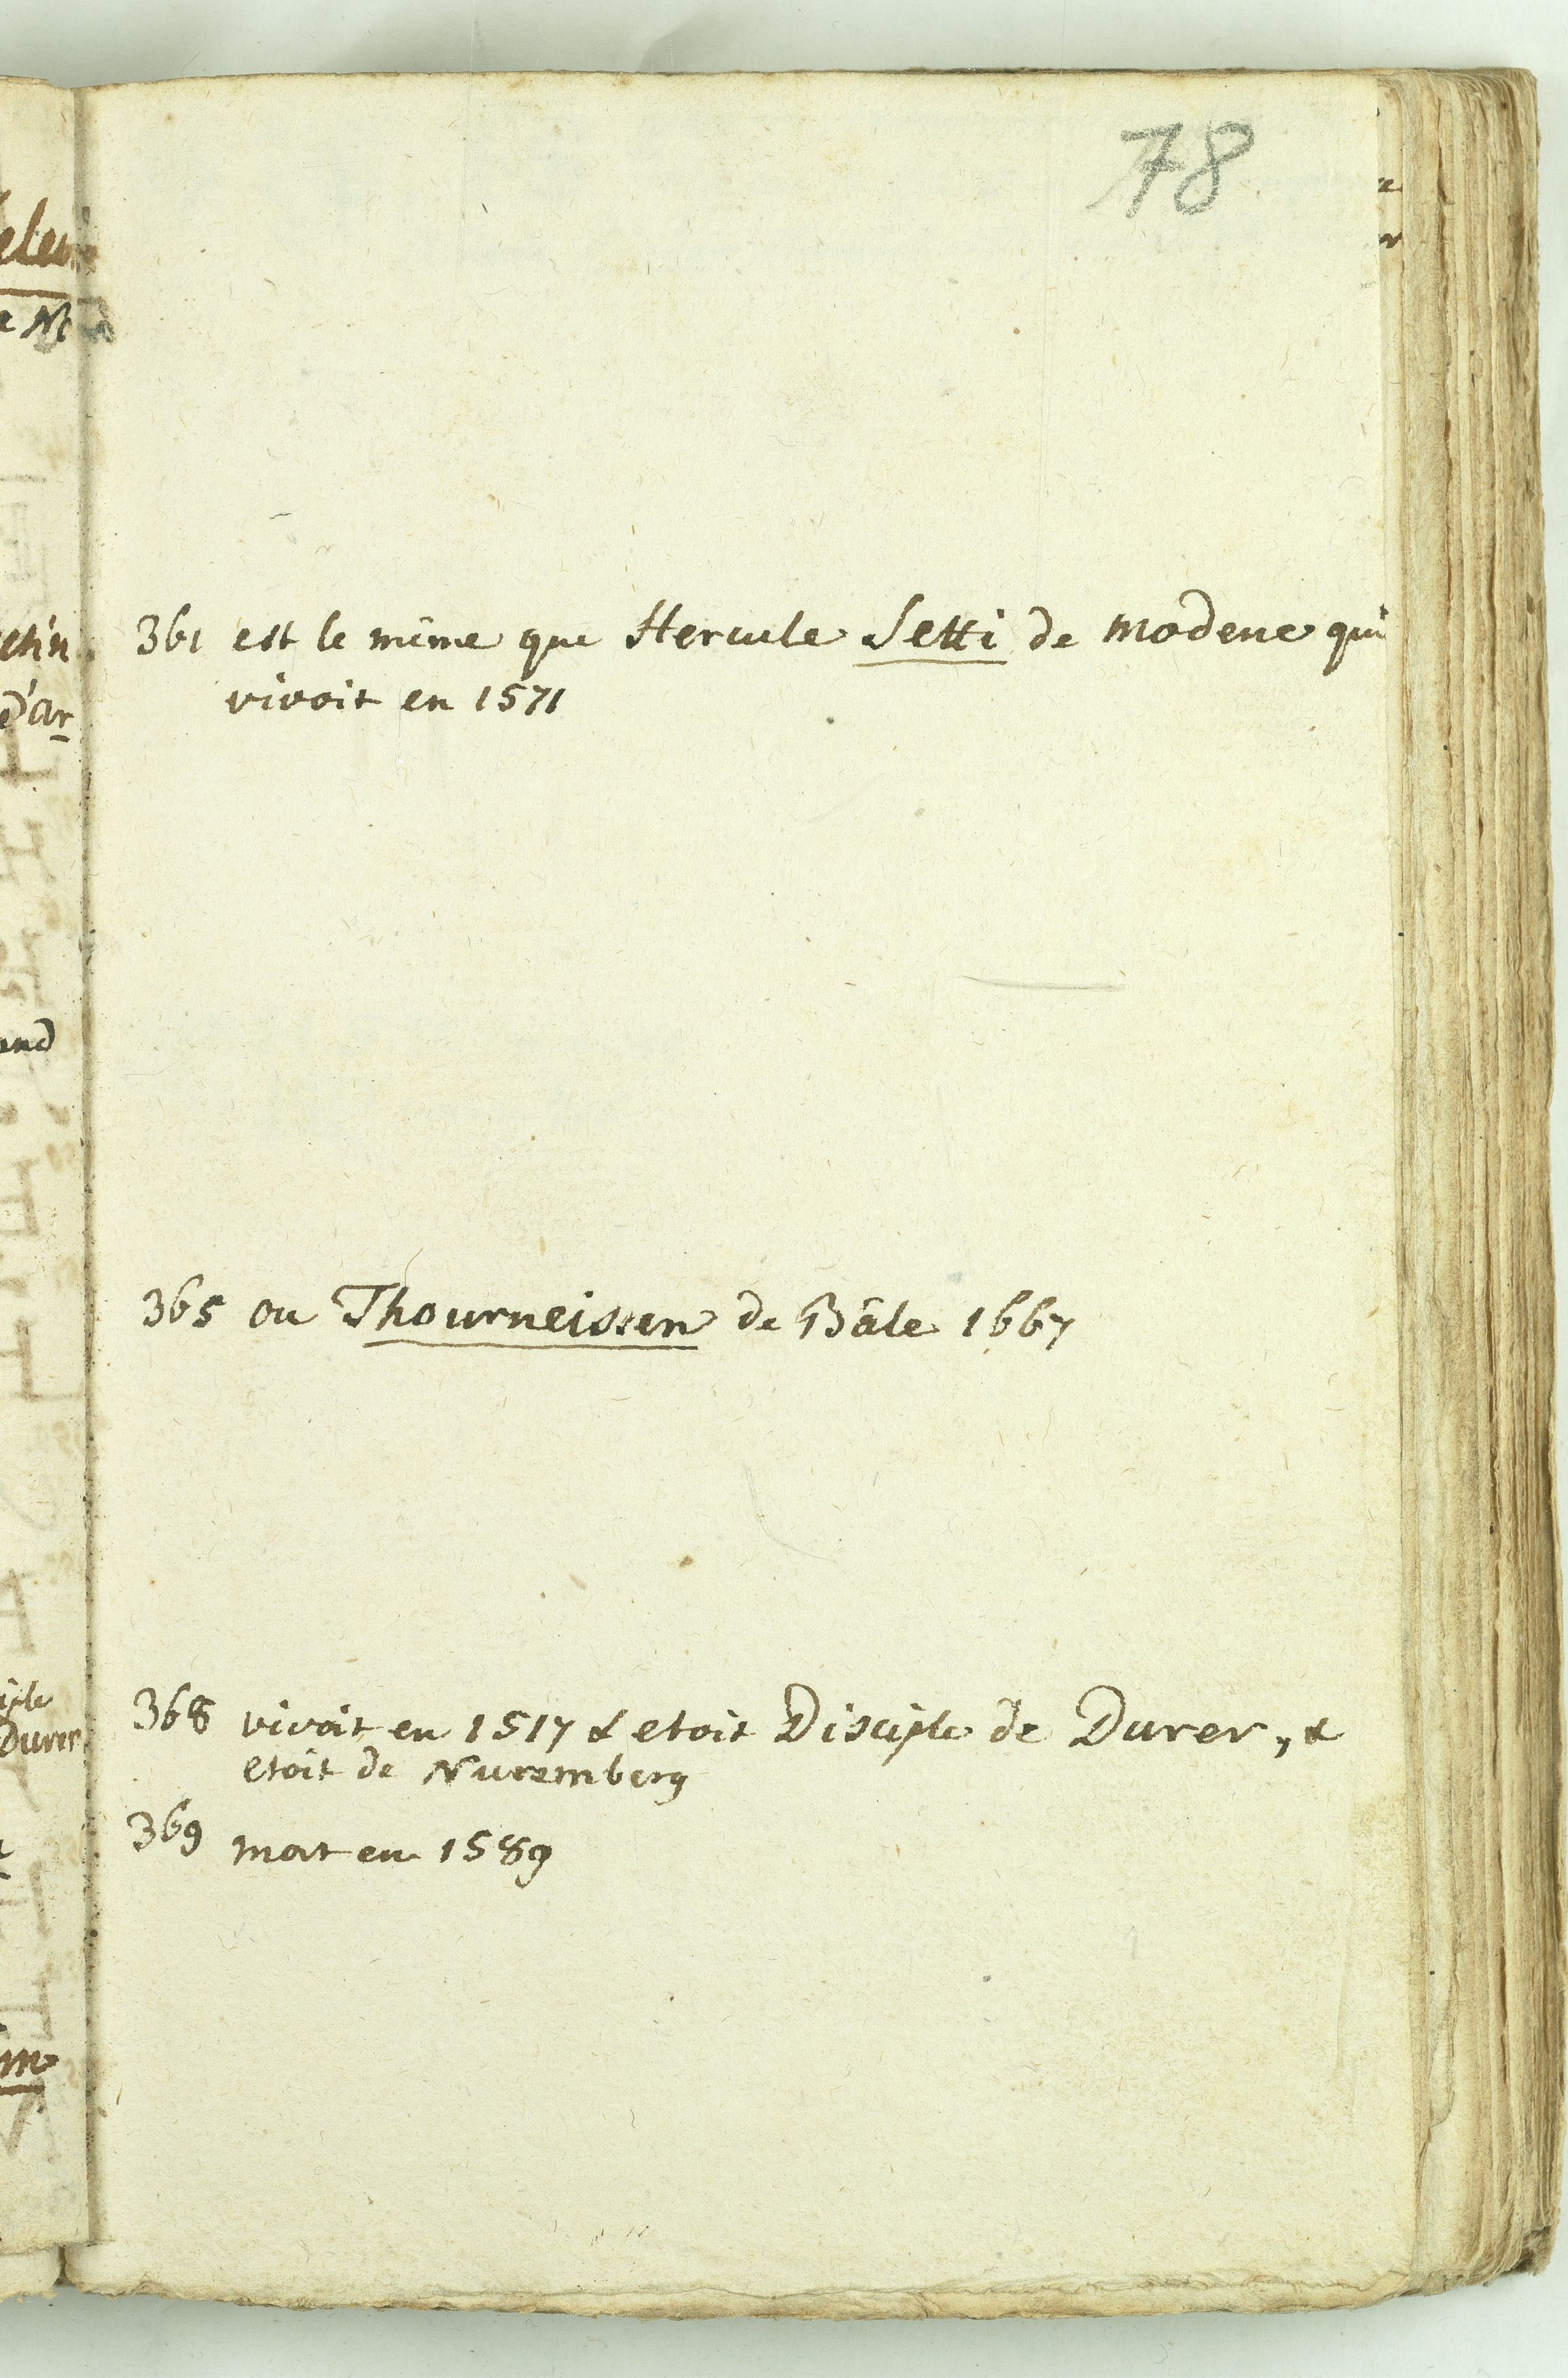 78
361 est le même que Hercule Setti de modene qui
vivoit en 1571
365 ou Thourneissen de Bâle 1667
368 vivoit en 1517 & etoit Disciple de Durer, &
etoit de Nuremberg
369 mort en 1589